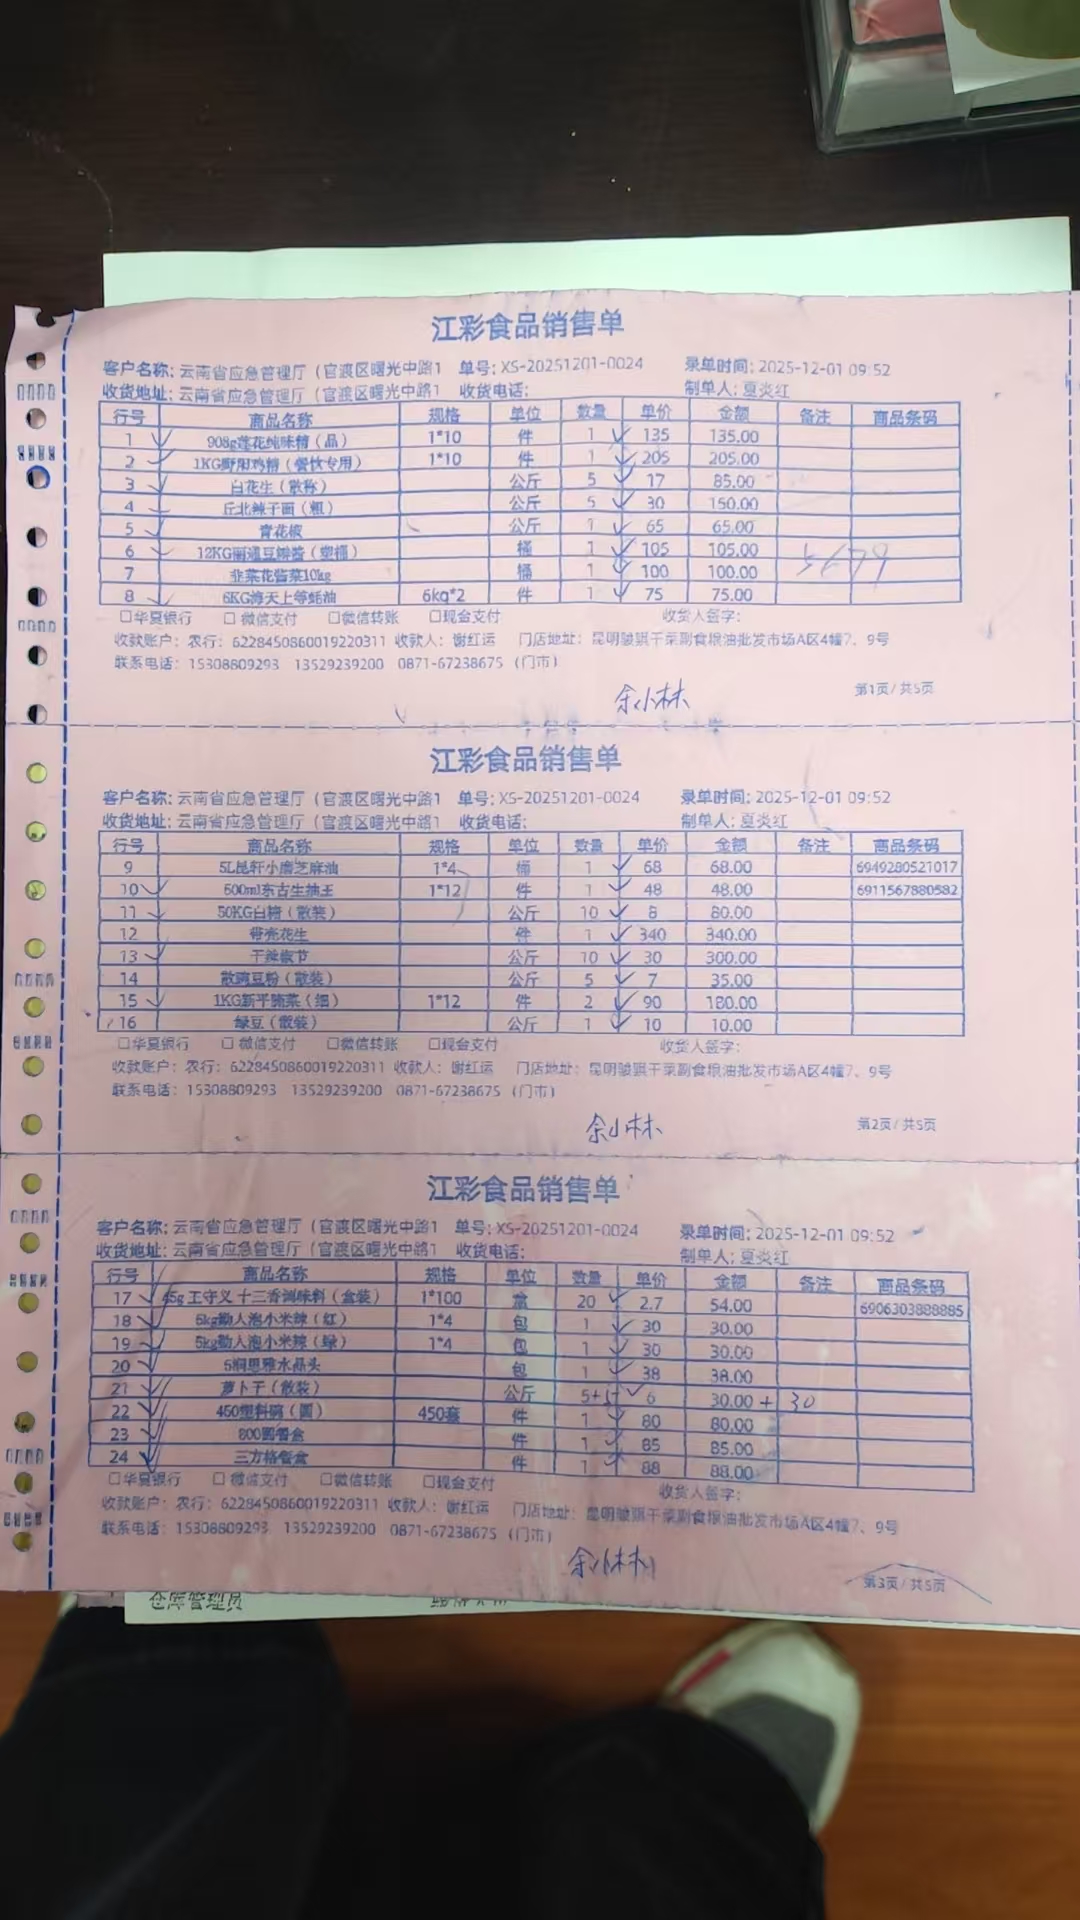 江彩食品销售单
客户名称: 云南省应急管理厅（官渡区曙光中路1 单号: XS-20251201-0024 录单时间: 2025-12-01 09:52
收货地址: 云南省应急管理厅（官渡区曙光中路1 收货电话: 制单人: 夏炎红
行号 商品名称 规格 单位 数量 单价 金额 备注 商品条码
1 908g莲花纯味精（品） 1*10 件 1 135 135.00
2 1KG野阳鸡精（餐饮专用） 1*10 件 1 205 205.00
3 白花生（散称） 公斤 5 17 85.00
4 丘北辣子面（粗） 公斤 5 30 150.00
5 青花椒 公斤 1 65 65.00
6 12KG豆瓣酱（塑桶） 桶 1 105 105.00
7 韭菜花酱菜10kg 桶 1 100 100.00
8 6KG海天上等蚝油 6kg*2 件 1 75 75.00
☐华夏银行 ☐微信支付 ☐微信转账 ☐现金支付 收货人签字:
收款账户: 农行: 6228450860019220311 收款人: 谢红运 门店地址: 昆明骏骐干菜副食粮油批发市场A区4幢7、9号
联系电话: 15308809293 13529239200 0871-67238675（门市）
余小林
第1页/共5页
江彩食品销售单
客户名称: 云南省应急管理厅（官渡区曙光中路1 单号: XS-20251201-0024 录单时间: 2025-12-01 09:52
收货地址: 云南省应急管理厅（官渡区曙光中路1 收货电话: 制单人: 夏炎红
行号 商品名称 规格 单位 数量 单价 金额 备注 商品条码
9 5L昆轩小磨芝麻油 1*4 桶 1 68 68.00 6949280521017
10 500ml东古生抽王 1*12 件 1 48 48.00 6911567880582
11 50KG白糖（散装） 公斤 10 8 80.00
12 带壳花生 件 1 340 340.00
13 干辣椒节 公斤 10 30 300.00
14 散豌豆粉（散装） 公斤 5 7 35.00
15 1KG新平腌菜（细） 1*12 件 2 90 180.00
16 绿豆（散装） 公斤 1 10 10.00
☐华夏银行 ☐微信支付 ☐微信转账 ☐现金支付 收货人签字:
收款账户: 农行: 6228450860019220311 收款人: 谢红运 门店地址: 昆明骏骐干菜副食粮油批发市场A区4幢7、9号
联系电话: 15308809293 13529239200 0871-67238675（门市）
余小林
第2页/共5页
江彩食品销售单
客户名称: 云南省应急管理厅（官渡区曙光中路1 单号: XS-20251201-0024 录单时间: 2025-12-01 09:52
收货地址: 云南省应急管理厅（官渡区曙光中路1 收货电话: 制单人: 夏炎红
行号 商品名称 规格 单位 数量 单价 金额 备注 商品条码
17 45g 王守义 十三香调味料（盒装） 1*100 盒 20 2.7 54.00 6906303888885
18 5kg勐人泡小米辣（红） 1*4 包 1 30 30.00
19 5kg勐人泡小米辣（绿） 1*4 包 1 30 30.00
20 恩雅水晶头 包 1 38 38.00
21 萝卜干（散装） 公斤 5+5 6 30.00 + 30
22 450塑料碗（圆） 450套 件 1 80 80.00
23 800圆餐盒 件 1 85 85.00
24 三方格餐盒 件 1 88 88.00
☐华夏银行 ☐微信支付 ☐微信转账 ☐现金支付 收货人签字:
收款账户: 农行: 6228450860019220311 收款人: 谢红运 门店地址: 昆明骏骐干菜副食粮油批发市场A区4幢7、9号
联系电话: 15308809293 13529239200 0871-67238675（门市）
余小林
第3页/共5页
仓库管理员